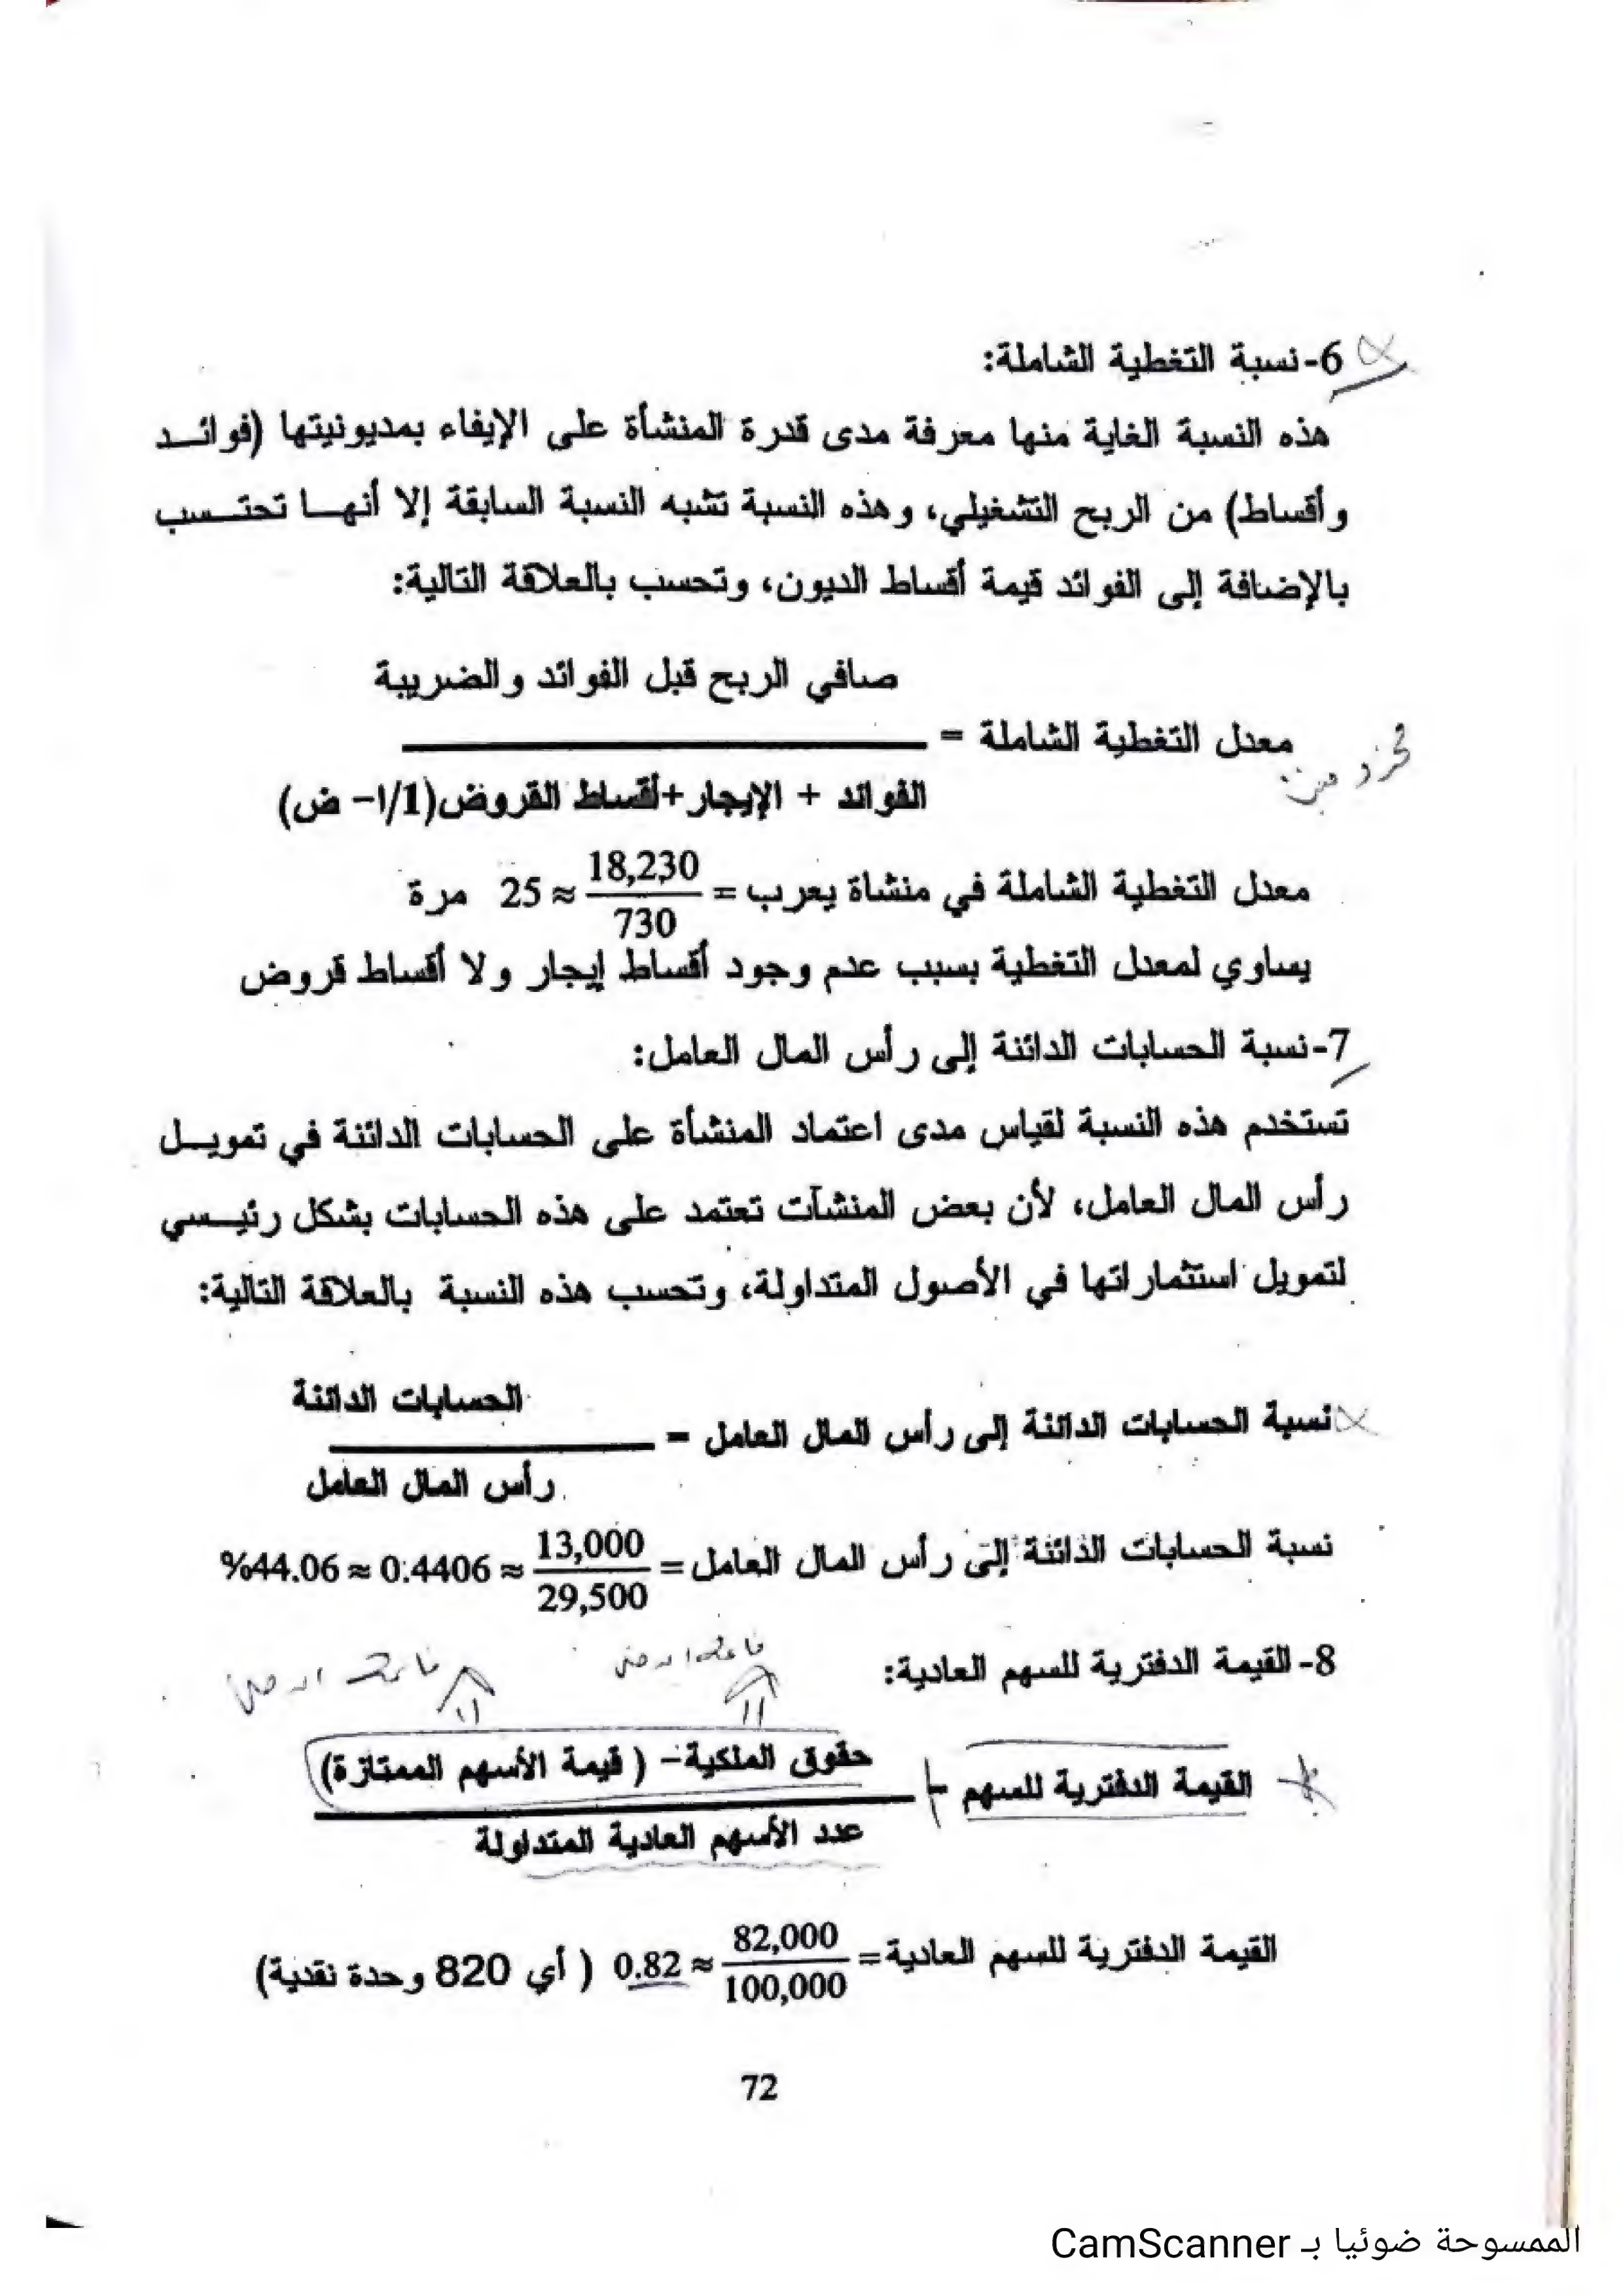 6-نسبة التغطية الشاملة:
هذه النسبة الغاية منها معرفة مدى قدرة المنشأة على الإيفاء بمديونيتها (فوائد
وأقساط) من الربح التشغيلي، وهذه النسبة تشبه النسبة السابقة إلا أنها تحتسب
بالإضافة إلى الفوائد قيمة أقساط الديون، وتحسب بالعلاقة التالية:
صافي الربح قبل الفوائد والضريبة
معدل التغطية الشاملة =
الفوائد + الإيجار+أقساط القروض(1/1- ض)
معدل التغطية الشاملة في منشاة يعرب = 18,230 / 730 ≈ 25 مرة
يساوي لمعدل التغطية بسبب عدم وجود أقساط إيجار ولا أقساط قروض
7-نسبة الحسابات الدائنة إلى رأس المال العامل:
تستخدم هذه النسبة لقياس مدى اعتماد المنشأة على الحسابات الدائنة في تمويل
رأس المال العامل، لأن بعض المنشآت تعتمد على هذه الحسابات بشكل رئيسي
لتمويل استثماراتها في الأصول المتداولة، وتحسب هذه النسبة بالعلاقة التالية:
الحسابات الدائنة
نسبة الحسابات الدائنة إلى رأس المال العامل =
رأس المال العامل
نسبة الحسابات الدائنة إلى رأس المال العامل = 13,000 / 29,500 ≈ 0.4406 ≈ 44.06%
8-القيمة الدفترية للسهم العادية:
حقوق الملكية- ( قيمة الأسهم الممتازة)
القيمة الدفترية للسهم =
عدد الأسهم العادية المتداولة
القيمة الدفترية للسهم العادية= 82,000 / 100,000 ≈ 0.82 ( أي 820 وحدة نقدية)
72
الممسوحة ضوئيا بـ CamScanner